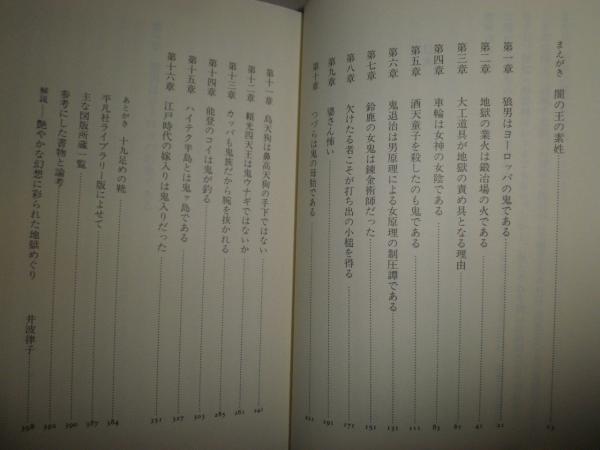 まえがき 闇の王の素姓 13
第一章 狼男はヨーロッパの鬼である 21
第二章 地獄の業火は鍛冶場の火である 41
第三章 大工道具が地獄の責め具となる理由 67
第四章 車輪は女神の女陰である 83
第五章 酒天童子を殺したのも鬼である 111
第六章 鬼退治は男原理による女原理の制圧譚である 131
第七章 鈴鹿の女鬼は錬金術師だった 151
第八章 欠けたる者こそが打ち出の小槌を得る 171
第九章 婆さん怖い 191
第十章 つづらは鬼の母胎である
第十一章 烏天狗は鼻高天狗の手下ではない 241
第十二章 頼光四天王は鬼ウナギではないか 261
第十三章 カッパも鬼族だから腕を抜かれる 285
第十四章 能登のコイは鬼が釣る 303
第十五章 ハイテク半島とは鬼ヶ島である 327
第十六章 江戸時代の嫁入りは鬼入りだった 351
あとがき 十九足めの靴 384
平凡社ライブラリー版によせて 387
主な図版所蔵一覧 390
参考にした書物と論考 392
解説——艶やかな幻想に彩られた地獄めぐり 井波律子 398